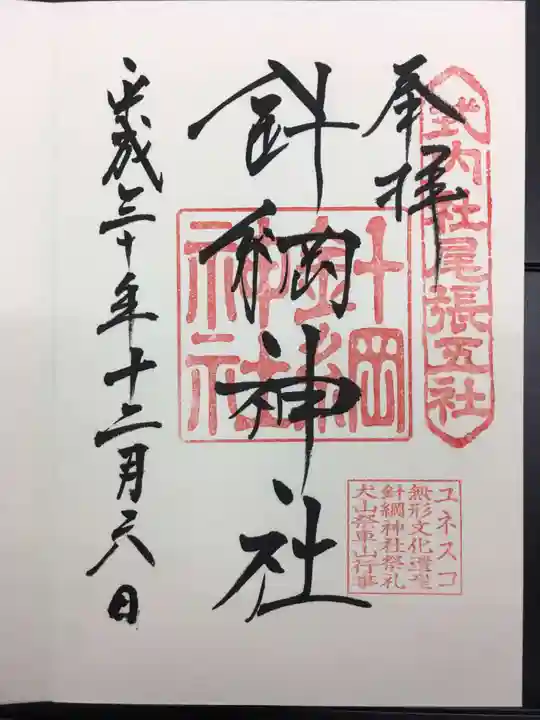 奉拝
式内社尾張五社
針綱神社
針綱
神社
平成三十年十二月六日
ユネスコ
無形文化遺産
針綱神社祭礼
犬山祭車山行事